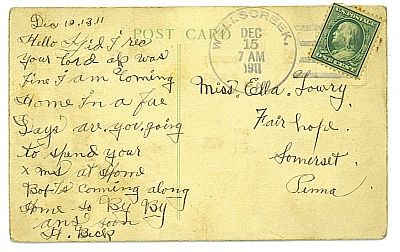 Dec 12.13.11
Hello I did I rea
your Card at was
fine I am Coming
Home In a fue
Days are you going
to spend your
x mas at Home
Bot Is coming along
Home so By By
ans soon
H. Beck
POST CARD
WELLSCREEK,
DEC
15
7 AM
1911
Miss. Ella. Lowry.
Fair hope.
Somerset.
Penna.